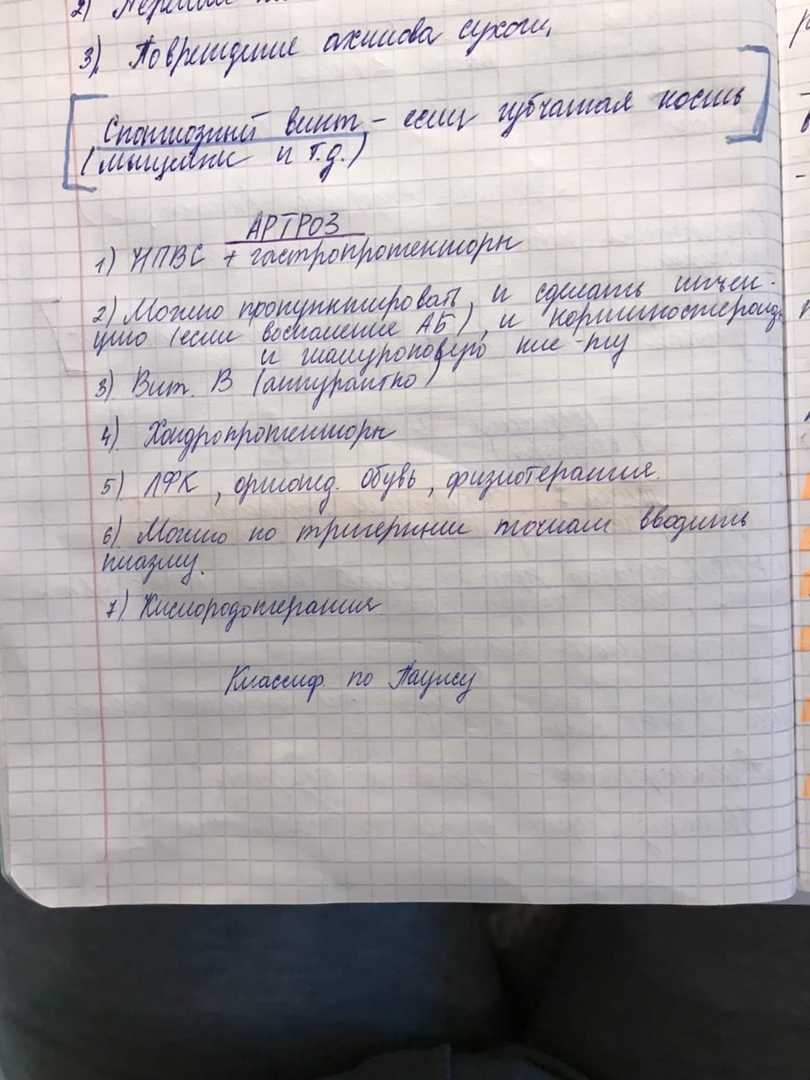 2) Перелом
3). Повреждение ахиллова сухож.
[Спонгиозный винт – если губчатая кость
(мыщелки и т.д.)]
АРТРОЗ
1) НПВС + гастропротекторы
2) Можно пропунктировать, и сделать
цию (если воспаление АБ), и кортикостероид.
и гиалуроновую кис-ту
3) Вит. В (аккуратно)
4) Хондропротекторы
5) ЛФК, ортопед. обувь, физиотерапия.
6) Можно по тригерным точкам вводить
плазму.
7) Кислородотерапия
Классиф. по Паулсу